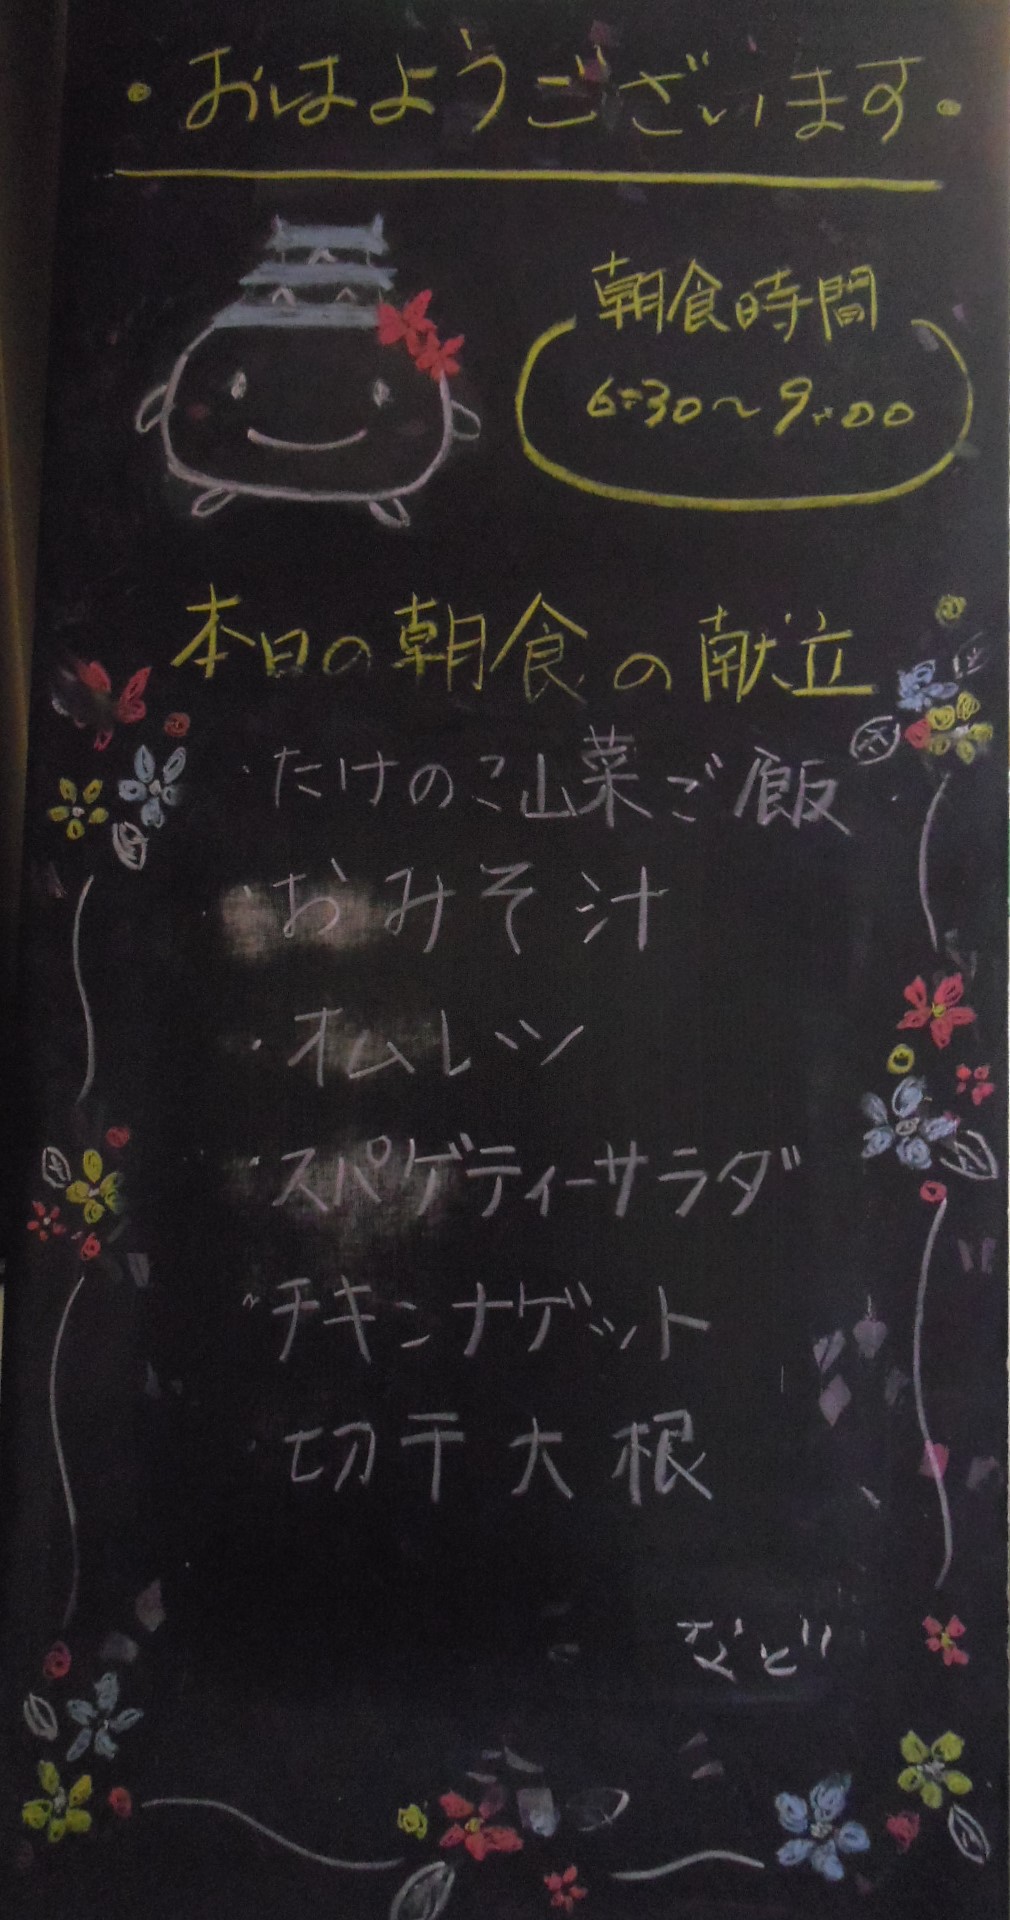 ・おはようございます・
朝食時間
6:30〜9:00
本日の朝食の献立
・たけのこ山菜ご飯
・おみそ汁
・オムレツ
・スパゲティーサラダ
・チキンナゲット
・切干大根
など